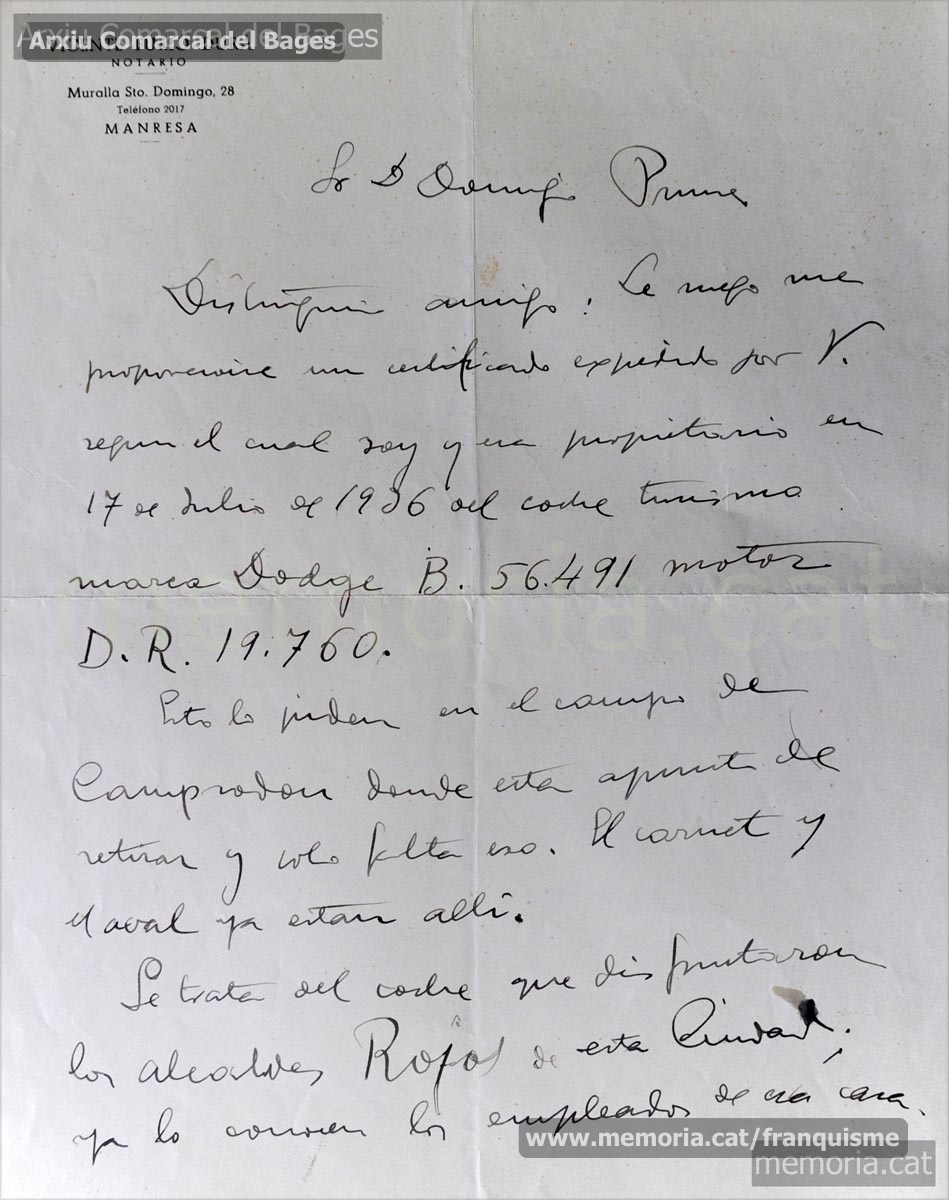 Arxiu Comarcal del Bages
NOTARIO
Muralla Sto. Domingo, 28
Teléfono 2017
MANRESA
Sr D Domingo Prunes
Distinguido amigo: Le ruego me
proporcione un certificado expedido por V.
segun el cual soy y era propietario en
17 de Julio de 1936 del coche turismo
marca Dodge B. 56.491 motor
D.R. 19.760.
Esto lo piden en el campo de
Camprodon donde esta apunto de
retirar y solo falta eso. El carnet y
el aval ya estan alli.
Se trata del coche que disfrutaron
los alcaldes Rojos de esta Ciudad;
ya lo conocen los empleados de esa casa.
www.memoria.cat/franquisme
memoria.cat